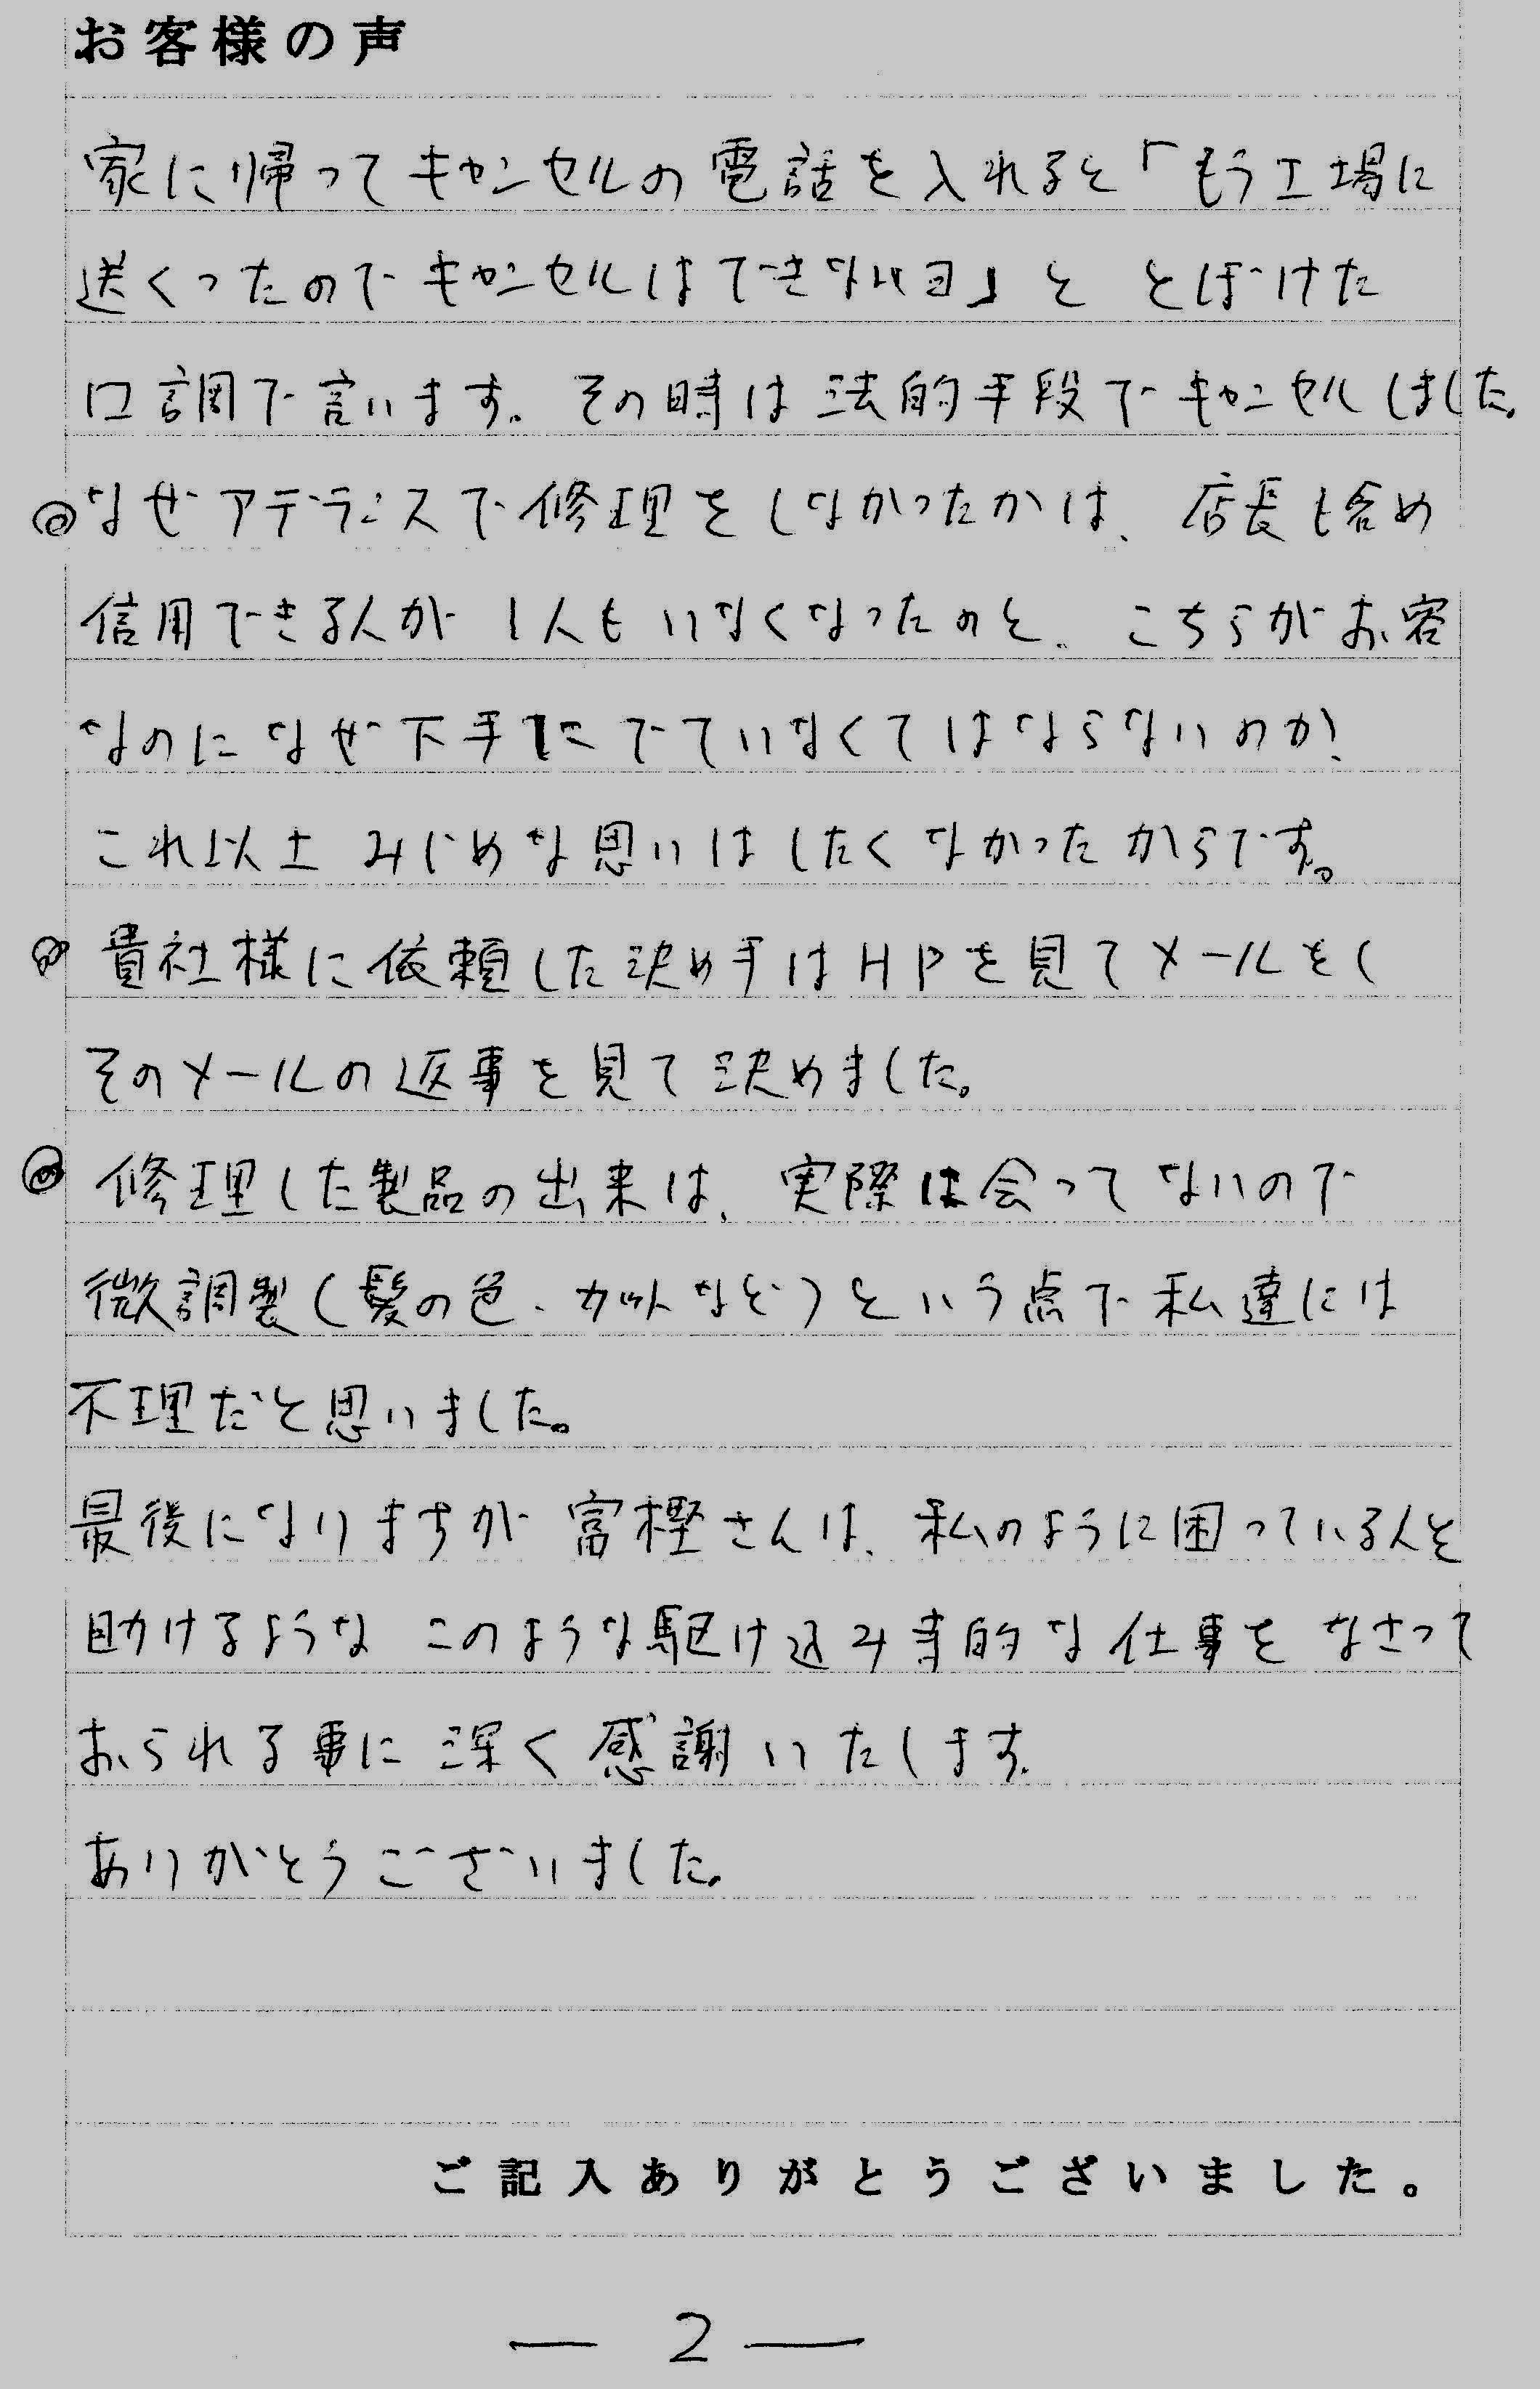 お客様の声
家に帰ってキャンセルの電話を入れると「もう工場に
送くったのでキャンセルはできないヨ」と とぼけた
口調で言います。その時は法的手段でキャンセルしました。
◎なぜアデランスで修理をしなかったかは、店長も含め
信用できる人が1人もいなくなったのと、こちらがお客
なのになぜ下手にでていなくてはならないのか!
これ以上 みじめな思いはしたくなかったからです。
◎貴社様に依頼した決め手はHPを見てメールをし
そのメールの返事を見て決めました。
◎修理した製品の出来は、実際は会ってないので
微調製(髪の色、カットなど)という点で私達には
不理だと思いました。
最後になりますが富樫さんは、私のように困っている人を
助けるような このような駆け込み寺的な仕事をなさって
おられる事に深く感謝いたします。
ありがとうございました。
ご記入ありがとうございました。
— 2 —